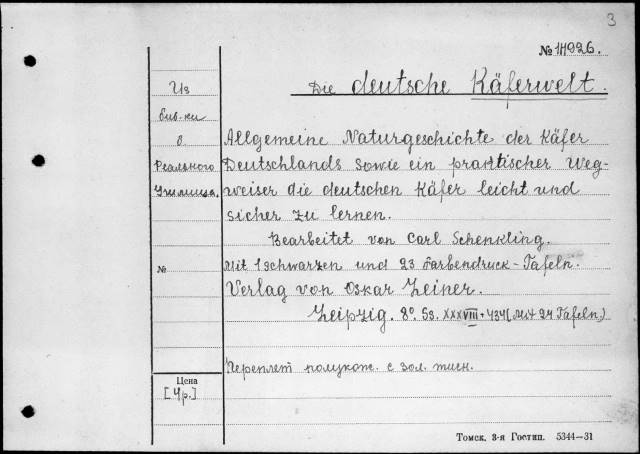 3
№ 14926.
Die deutsche Käferwelt.
Из
биб-ки
б.
Реального
Училища.
Allgemeine Naturgeschichte der Käfer
Deutschlands sowie ein praktischer Weg-
weiser die deutschen Käfer leicht und
sicher zu lernen.
Bearbeitet von Carl Schenkling.
№
Mit 1 schwarzen und 23 Farbendruck-Tafeln.
Verlag von Oskar Leiner.
Leipzig. 8°. Ss. XXXVIII + 434 (Mit 24 Tafeln.)
Переплет полукож. с зол. тисн.
Цена
[4р.]
Томск. 3-я Гостип. 5344—31